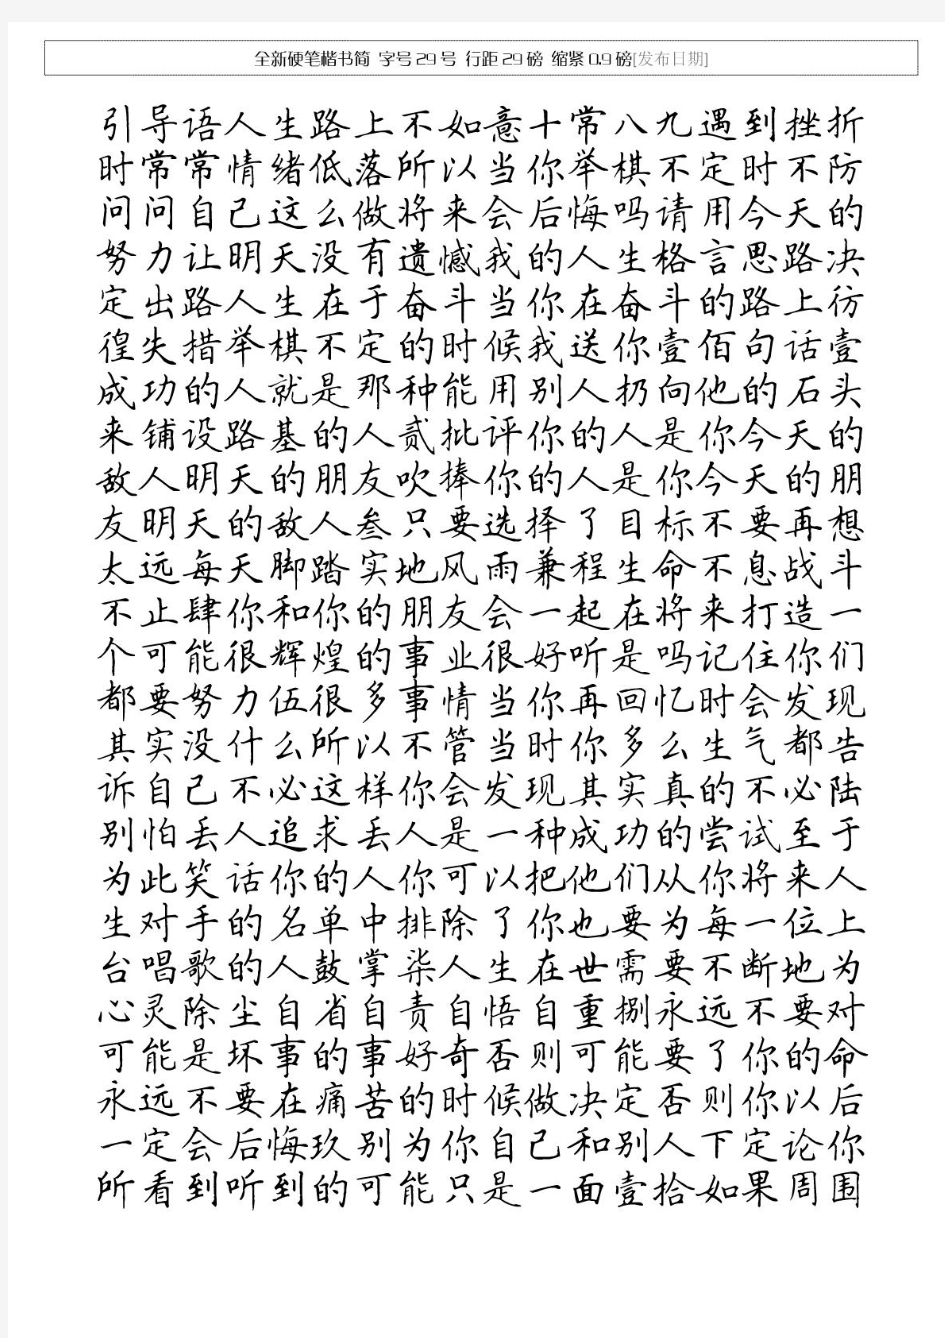 全新硬笔楷书简 字号29号 行距29磅 缩紧0.9磅[发布日期]
引导语人生路上不如意十常八九遇到挫折
时常常情绪低落所以当你举棋不定时不防
问问自己这么做将来会后悔吗请用今天的
努力让明天没有遗憾我的人生格言思路决
定出路人生在于奋斗当你在奋斗的路上彷
徨失措举棋不定的时候我送你壹佰句话壹
成功的人就是那种能用别人扔向他的石头
来铺设路基的人贰批评你的人是你今天的
敌人明天的朋友吹捧你的人是你今天的朋
友明天的敌人叁只要选择了目标不要再想
太远每天脚踏实地风雨兼程生命不息战斗
不止肆你和你的朋友会一起在将来打造一
个可能很辉煌的事业很好听是吗记住你们
都要努力伍很多事情当你再回忆时会发现
其实没什么所以不管当时你多么生气都告
诉自己不必这样你会发现其实真的不必陆
别怕丢人追求丢人是一种成功的尝试至于
为此笑话你的人你可以把他们从你将来人
生对手的名单中排除了你也要为每一位上
台唱歌的人鼓掌柒人生在世需要不断地为
心灵除尘自省自责自悟自重捌永远不要对
可能是坏事的事好奇否则可能要了你的命
永远不要在痛苦的时候做决定否则你以后
一定会后悔玖别为你自己和别人下定论你
所看到听到的可能只是一面壹拾如果周围